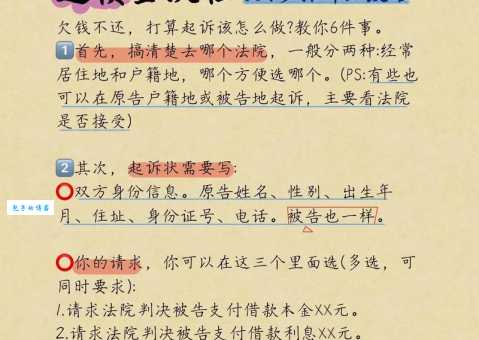 欠钱不还，打算起诉该怎么做?教你6件事。
1 首先，搞清楚去哪个法院，一般分两种:经常
居住地和户籍地，哪个方便选哪个。(PS:有些也
可以在原告户籍地或被告地起诉，主要看法院
是否接受)
2 其次，起诉状需要写:
双方身份信息。原告姓名、性别、出生年
月、住址、身份证号、电话。被告也一样。
你的请求，你可以在这三个里面选(多选，可
同时要求):
1.请求法院判决被告支付借款本金XX元。
2.请求法院判决被告支付借款利息XX元。